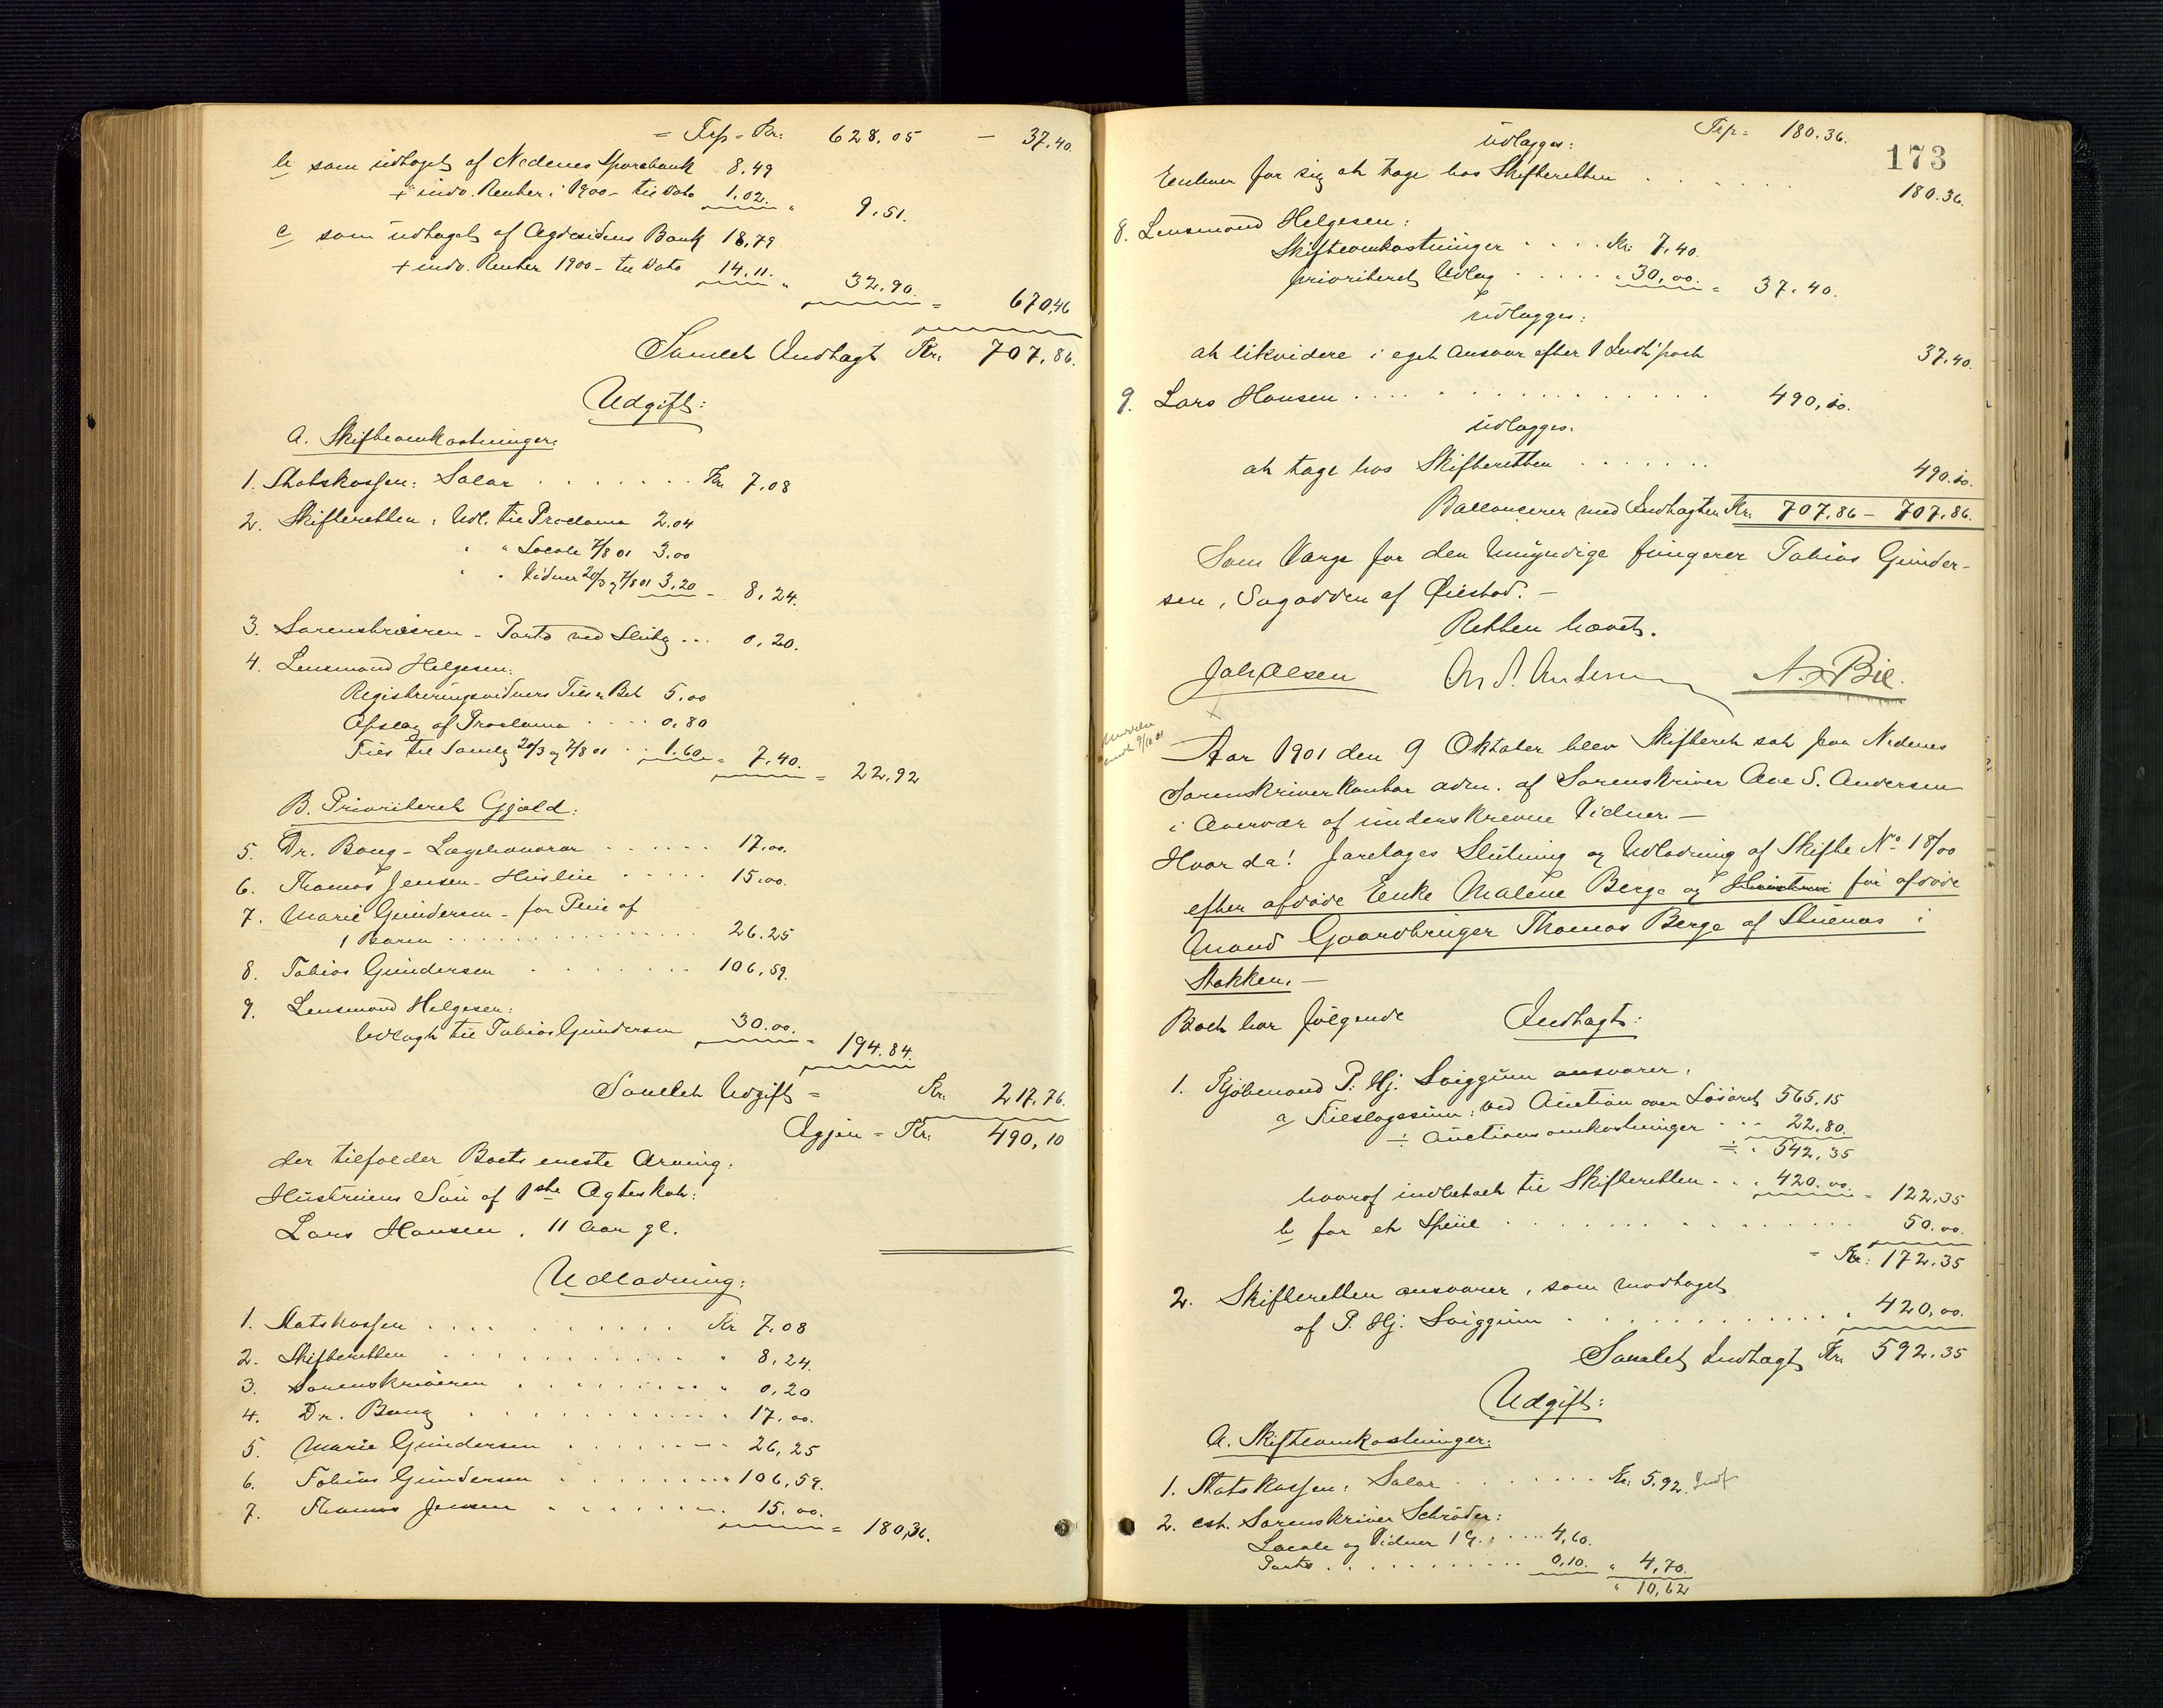 = Trp = Kr. 628.05 — 37.40.
b som udtaget af Nedenes Sparebank 8.49
+ indv. Renter i 1900 - til Dato 1.02. " 9.51.
c som udtaget af Agdesidens Bank 18,79
+ indv. Renter 1900 - til Dato 14.11. " 32.90. = 670,46
Samlet Indtægt Kr. 707.86.
Udgift:
A. Skifteomkostninger:
1. Statskassen: Salær . . . . . . . Kr. 7.08
2. Skifteretten: Udl. til Proclama 2.04
" " Locale 7/8 01 3.00
" " Vidner 20/3 og 7/8 01 3,20 = 8,24.
3. Sorenskriveren - Porto ved Slutn ... 0.20.
4. Lensmand Helgesen:
Registreringsvidners Tils. Bet 5.00
Opslag af Proclama . . . . 0.80
Tils. til Samlg 20/3 og 7/8 01 . . 1.60 = 7,40. = 22,92
B. Prioriteret Gjæld:
5. Dr. Bang - Lægehonorar . . . . . . 17.00.
6. Thomas Jensen - Husleie . . . . . 15.00.
7. Marie Gundersen - for Pleie af
1 Barn . . . . . . . . . . . . . . . . 26.25
8. Tobias Gundersen . . . . . . . . 106,59.
9. Lensmand Helgesen:
Udlagt til Tobias Gundersen 30.00. = 194.84.
Samlet Udgift = Kr. 217.76.
Igjen = Kr. 490,10
der tilfalder Boets eneste Arving:
Hustruens Søn af 1ste Ægteskab:
Lars Hansen, 11 Aar gl.
Udlodning:
1. Statskassen . . . . . . . . . . . Kr 7.08
2. Skifteretten . . . . . . . . . . . " 8,24.
3. Sorenskriveren . . . . . . . . . " 0,20
4. Dr. Bang . . . . . . . . . . . . 17.00.
5. Marie Gundersen . . . . . . . . 26,25
6. Tobias Gundersen . . . . . . . . " 106,59.
7. Thomas Jensen . . . . . . . . . 15.00. = 180,36.
Trp = 180.36.
173
udlægges:
Enhver for sig at tage hos Skifteretten . . . . . . 180.36.
8. Lensmand Helgesen:
Skifteomkostninger . . . . Kr. 7,40.
prioriteret Udlæg . . . . . . 30,00. = 37.40.
udlægges:
at likvidere i eget Ansvar efter 1 Indt. post 37.40.
9. Lars Hansen . . . . . . . . . . . . . . . 490,10.
udlægges.
at tage hos Skifteretten . . . . . . . 490.10.
Ballancerer med Indtægten Kr. 707.86 — 707.86.
Som Værge for den Umyndige fungerer Tobias Gunder-
sen, Sagodden af Øiestad. —
Retten hævet.
Joh Olsen And. S. Andersen N. Bie.
9/10 01
Aar 1901 den 9 Oktober blev Skifteret sat paa Nedenes
Sorenskriverkontor adm. af Sorenskriver Ove S. Andersen
i Overvær af underskrevne Vidner. —
Hvor da! foretages Slutning og Udlodning af Skifte No 18/00
efter afdøde Enke Malene Berge og for afdøde
Mand Gaardbruger Thomas Berge af Stuenes i
Stokken. —
Boet har følgende Indtægt:
1. Kjøbmand P. Hj. Sviggum ansvarer,
a Tilslagssum: ved Auction over Løsøret 565.15
÷ Auctionsomkostninger . . . 22,80.
= " 542,35
hvoraf indbetalt til Skifteretten . . . 420.00. = 122,35
b for et Speil . . . . . . . . . . . . . . 50.00.
= Kr: 172.35
2. Skifteretten ansvarer, som modtaget
af P. Hj. Sviggum . . . . . . . . . . . . . " 420,00.
Samlet Indtægt Kr. 592.35
Udgift:
A. Skifteomkostninger:
1. Statskassen: Salær . . . . . . . Kr. 5.92.
2. cst. Sorenskriver Schrøder:
Locale og Vidner 1 G. . . . . 4,60.
Porto . . . . . . . . . . . . 0,10. " 4,70.
" 10,62